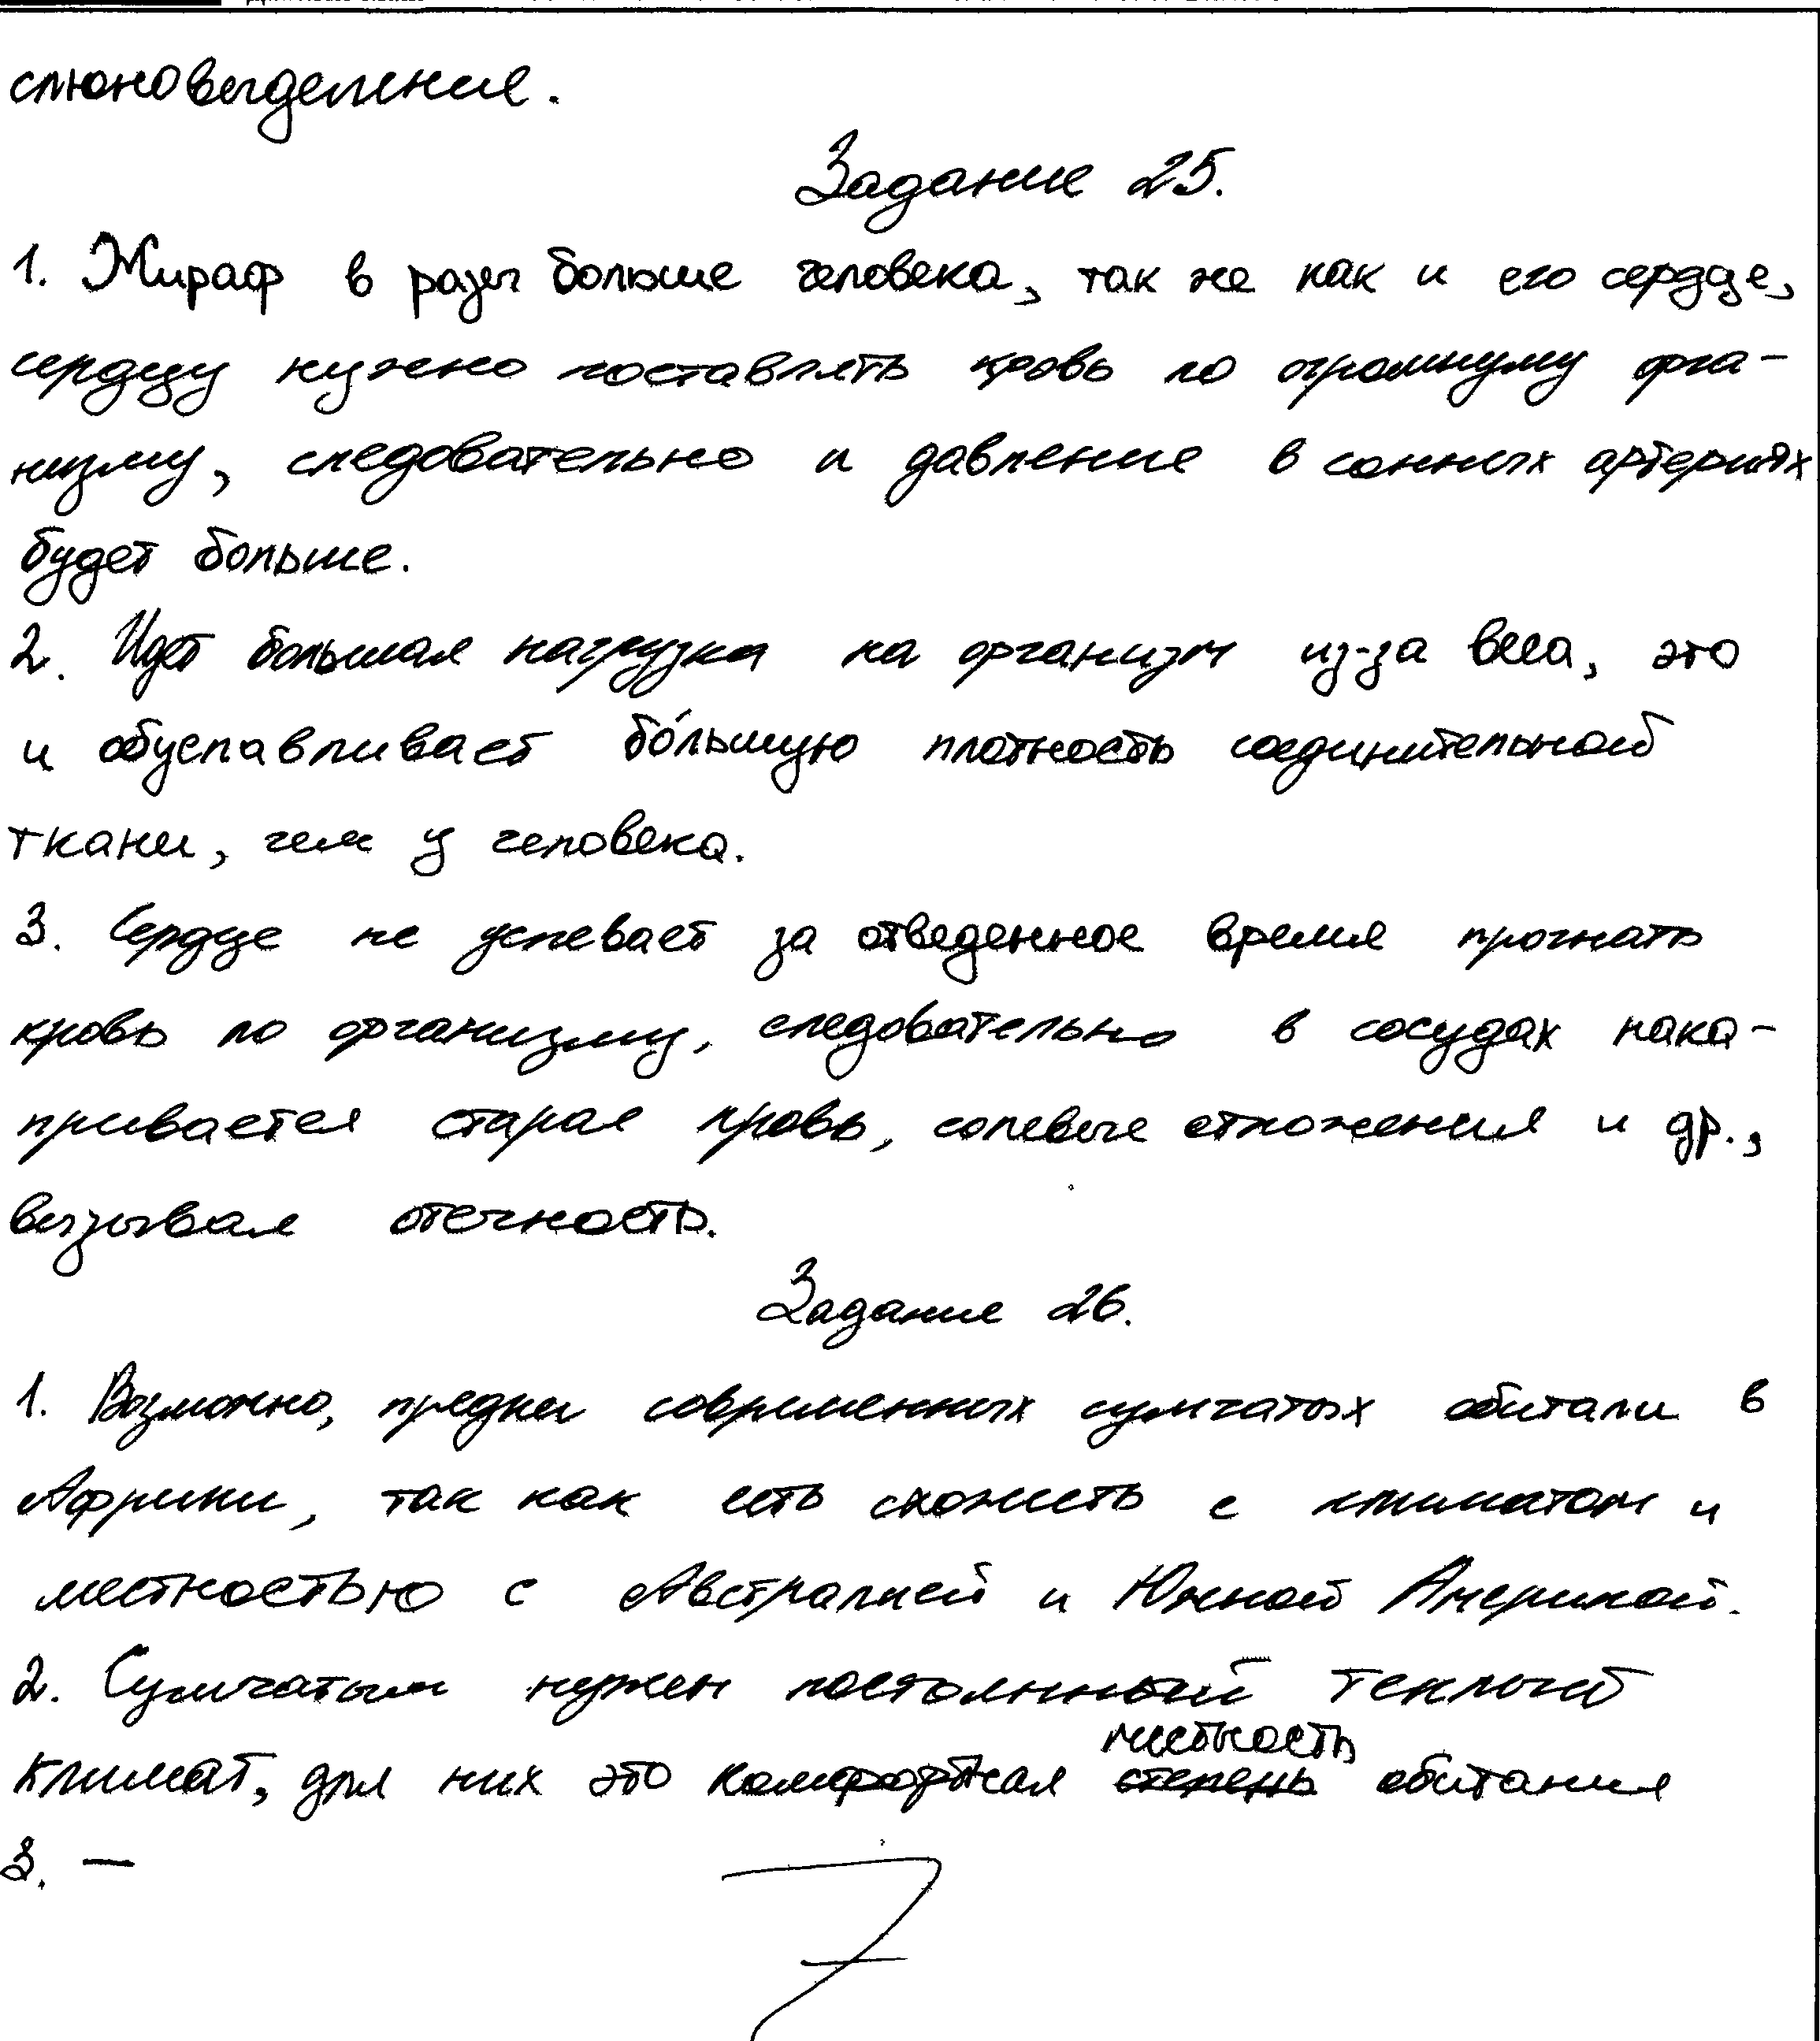 слюновыделение.
Задание 25.
1. Жираф в разы больше человека, так же как и его сердце,
сердцу нужно поставлять кровь по огромнуму орга-
низму, следовательно и давление в сонных артериях
будет больше.
2. Идет большая нагрузка на организм из-за веса, это
и обуславливает бо́льшую плотность соединительной
ткани, чем у человека.
3. Сердце не успевает за отведенное время прогнать
кровь по организму, следовательно в сосудах нака-
пливается старая кровь, солевые отложения и др.,
вызывая отечность.
Задание 26.
1. Возможно, предки современных сумчатых обитали в
Африки, так как есть схожесть с климатом и
местностью с Австралией и Южной Америкой.
2. Сумчатым нужен постоянный теплый
местность
климат, для них это комфортная степень обитания
3. —